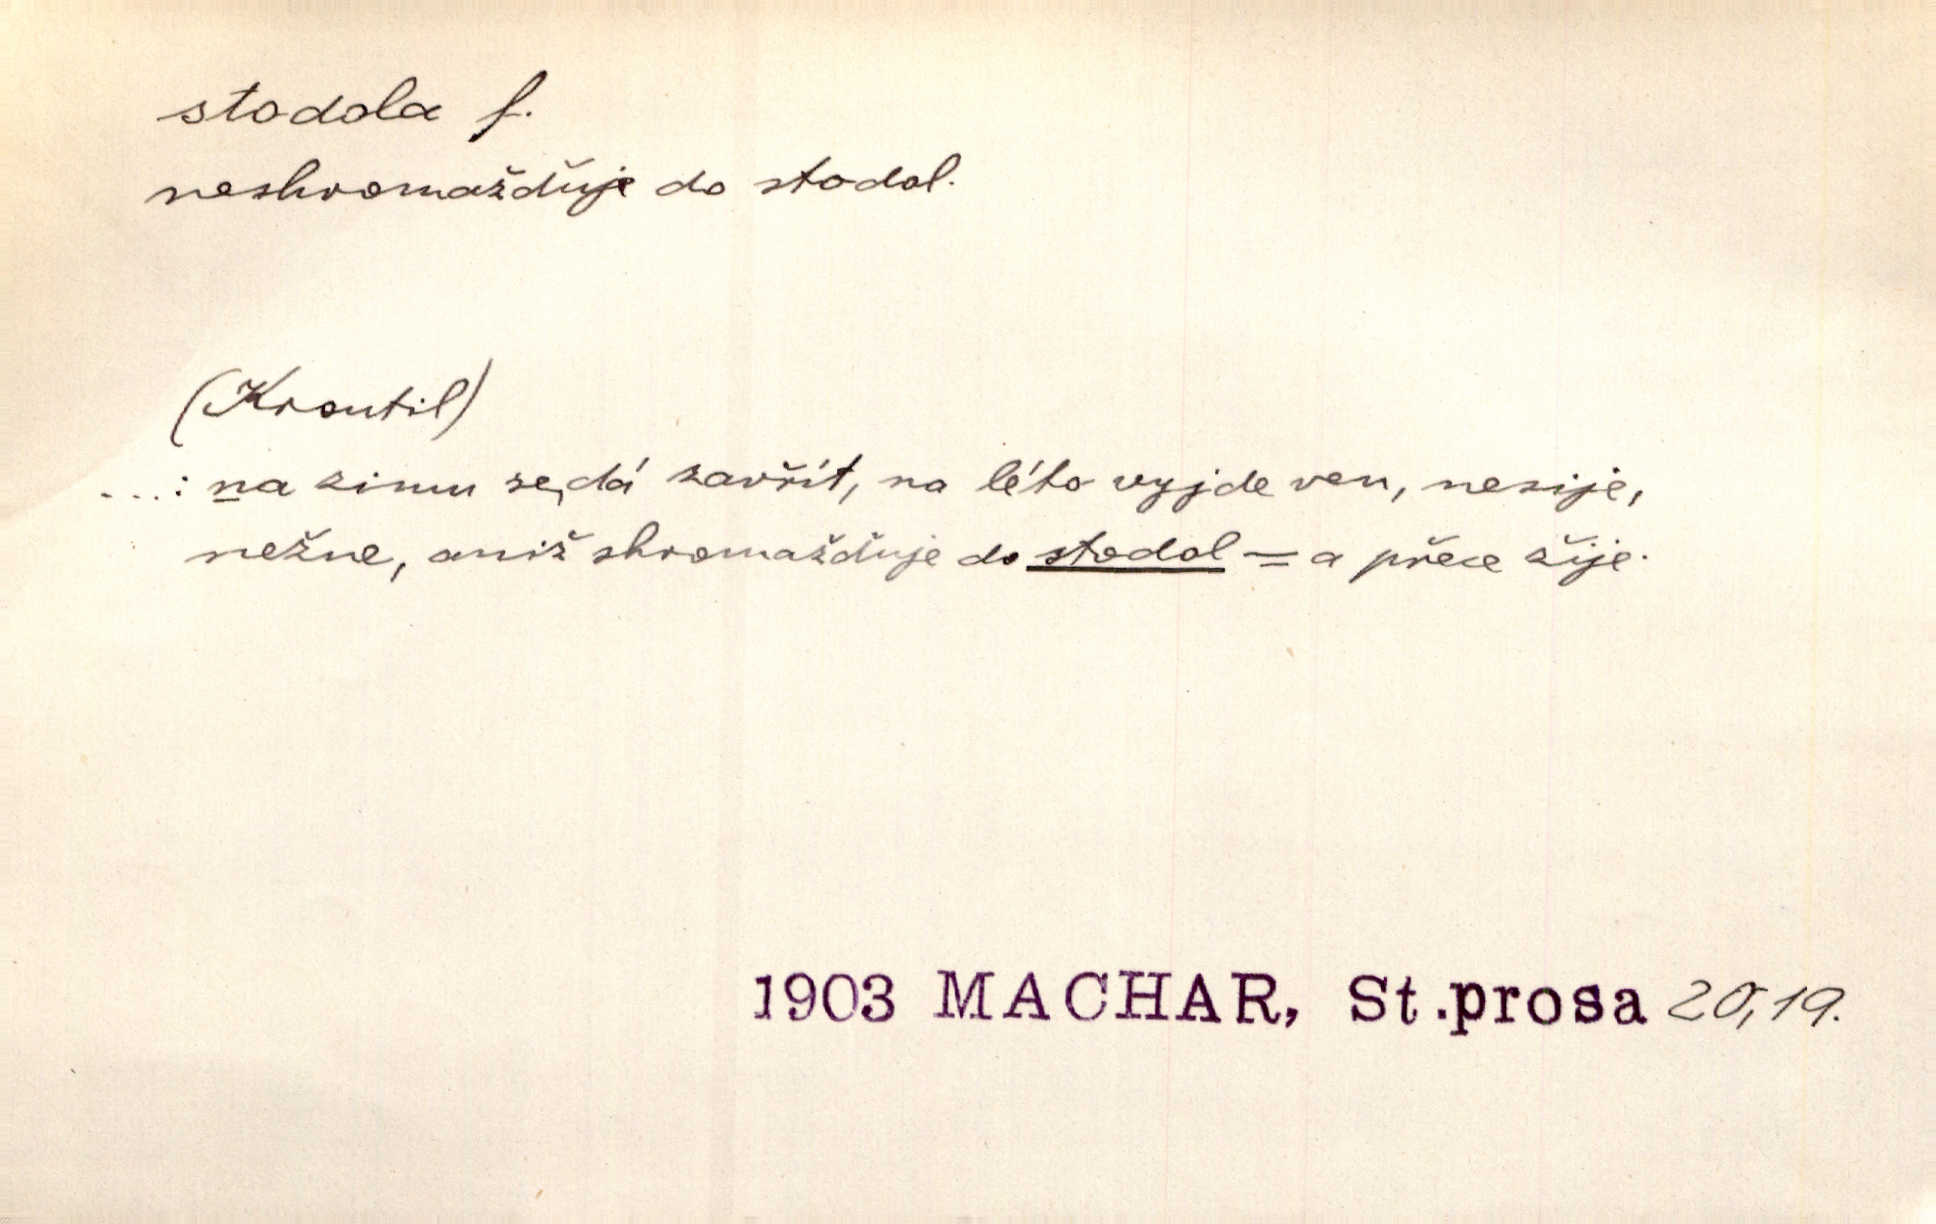 stodola f.
neshromažďuje do stodol.
(Kroutil)
...: na zimu se dá zavřít, na léto vyjde ven, nesije,
nežne, aniž shromažďuje do stodol = a přece žije.
1903 MACHAR, St.prosa 20,19.